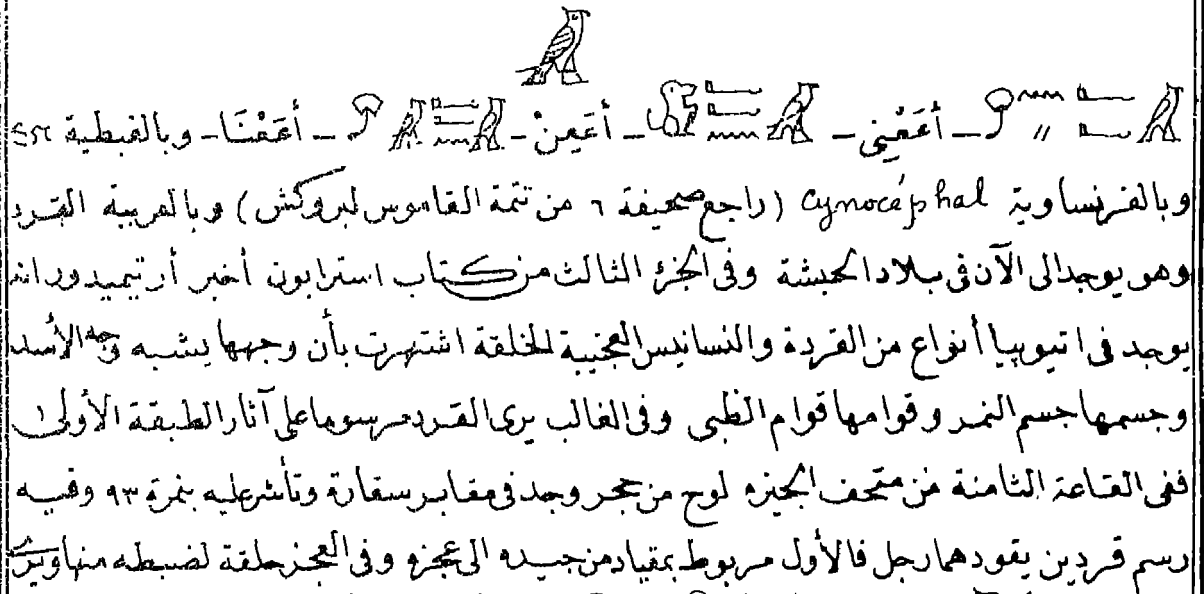 𓅃
𓄿𓂝𓂝𓈖𓏭 ـ أَعَعْنِي ـ 𓄿𓂝𓂝𓈖 ـ أَعَعِنْ ـ 𓄿𓂝𓂝𓈖𓄿 ـ أَعَعْنَا ـ وبالقبطية
وبالفرنساوية Cynocéphal (راجع صحيفة ٦ من تتمة القاموس لبروكش) وبالعربية القرد
وهو يوجد الى الآن فى بلاد الحبشة وفى الجزء الثالث من كتاب استرابون أخبر أرتيميدور انه
يوجد فى اتيوبيا أنواع من القردة والنسانيس العجيبة الخلقة اشتهرت بأن وجهها يشبه وجه الأسد
وجسمها جسم النمر وقوامها قوام الظبى وفى الغالب يرى القرد مرسوما على آثار الطبقة الأولى
ففى القاعة الثامنة من متحف الجيزه لوح من حجر وجد فى مقابر سقارة وتأشر عليه بنمرة ٩٣ وفيه
رسم قردين يقودهما رجل فالأول مربوط بمقياد من جيده الى عجزه وفى العجز حلقة لضبطه منها